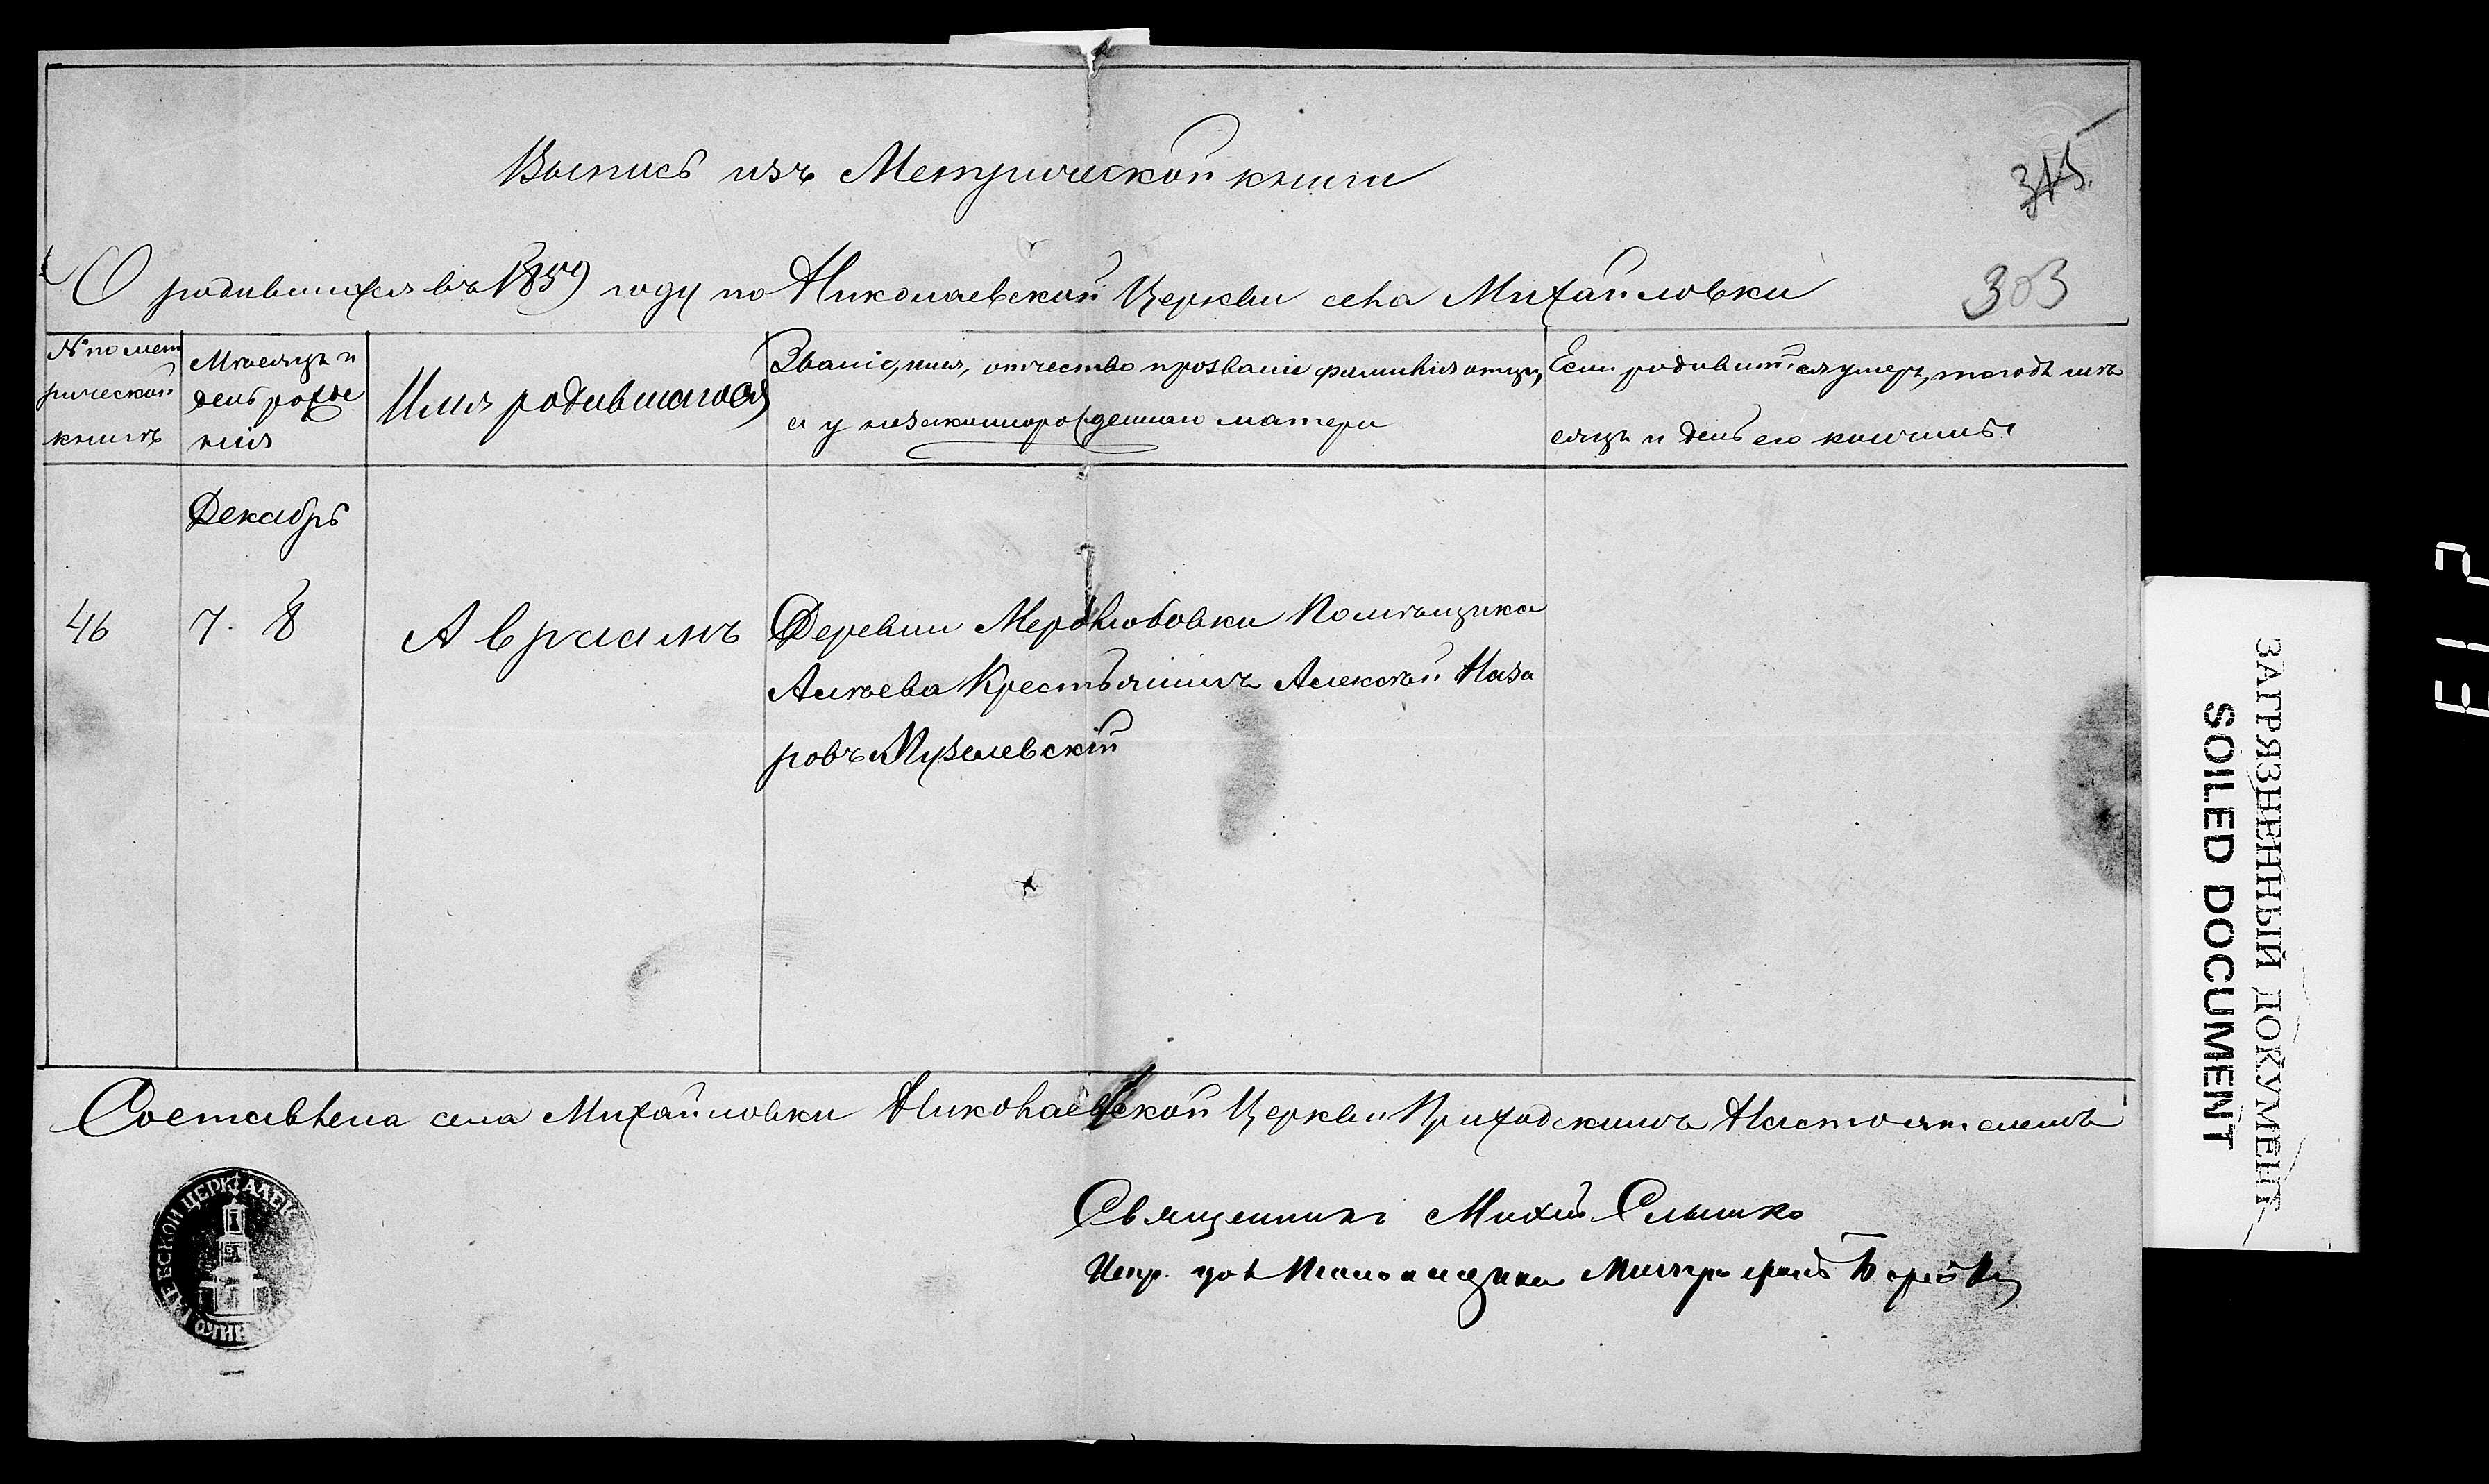 Выпись изъ Метрической книги
315
О родившихся въ 1859 году по Николаевской Церкви села Михайловки
303
№ по мет
рической
книгѣ
Мѣсяцъ и
день рожде
нія
Имя родившагося
Званіе, имя, отчество прозваніе фамилія отца,
а у незаконнорожденнаго матери
Если родившійся умеръ, то годъ мѣ
сяцъ и день его кончины
Декабрь
46
7. 8
Авраамъ
Деревни Помѣщика
Крестьянинъ Алексѣй Наза
ровъ Музалевскій
Составлена села Михайловки Николаевской Церкви Приходскимъ Настоятелемъ
Священникъ Михаилъ
Испр. дол Псаломщика Митрофанъ
ЕСКОЙ ЦЕРК. АЛЕК
ЗАГРЯЗНЕННЫЙ ДОКУМЕНТ
SOILED DOCUMENT